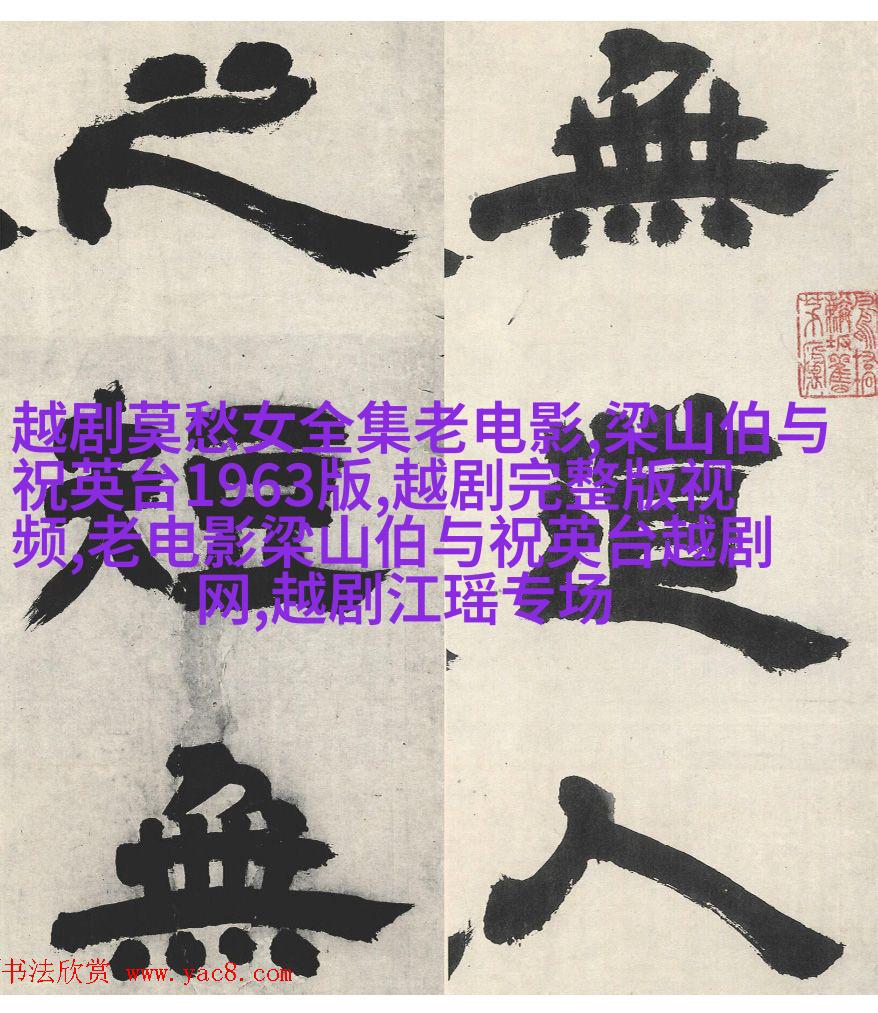 無道人
之短無
越剧莫愁女全集老电影,梁山伯与
祝英台1963版,越剧完整版视
频,老电影梁山伯与祝英台越剧
网,越剧江瑶专场
书法欣赏 www.yac8.com